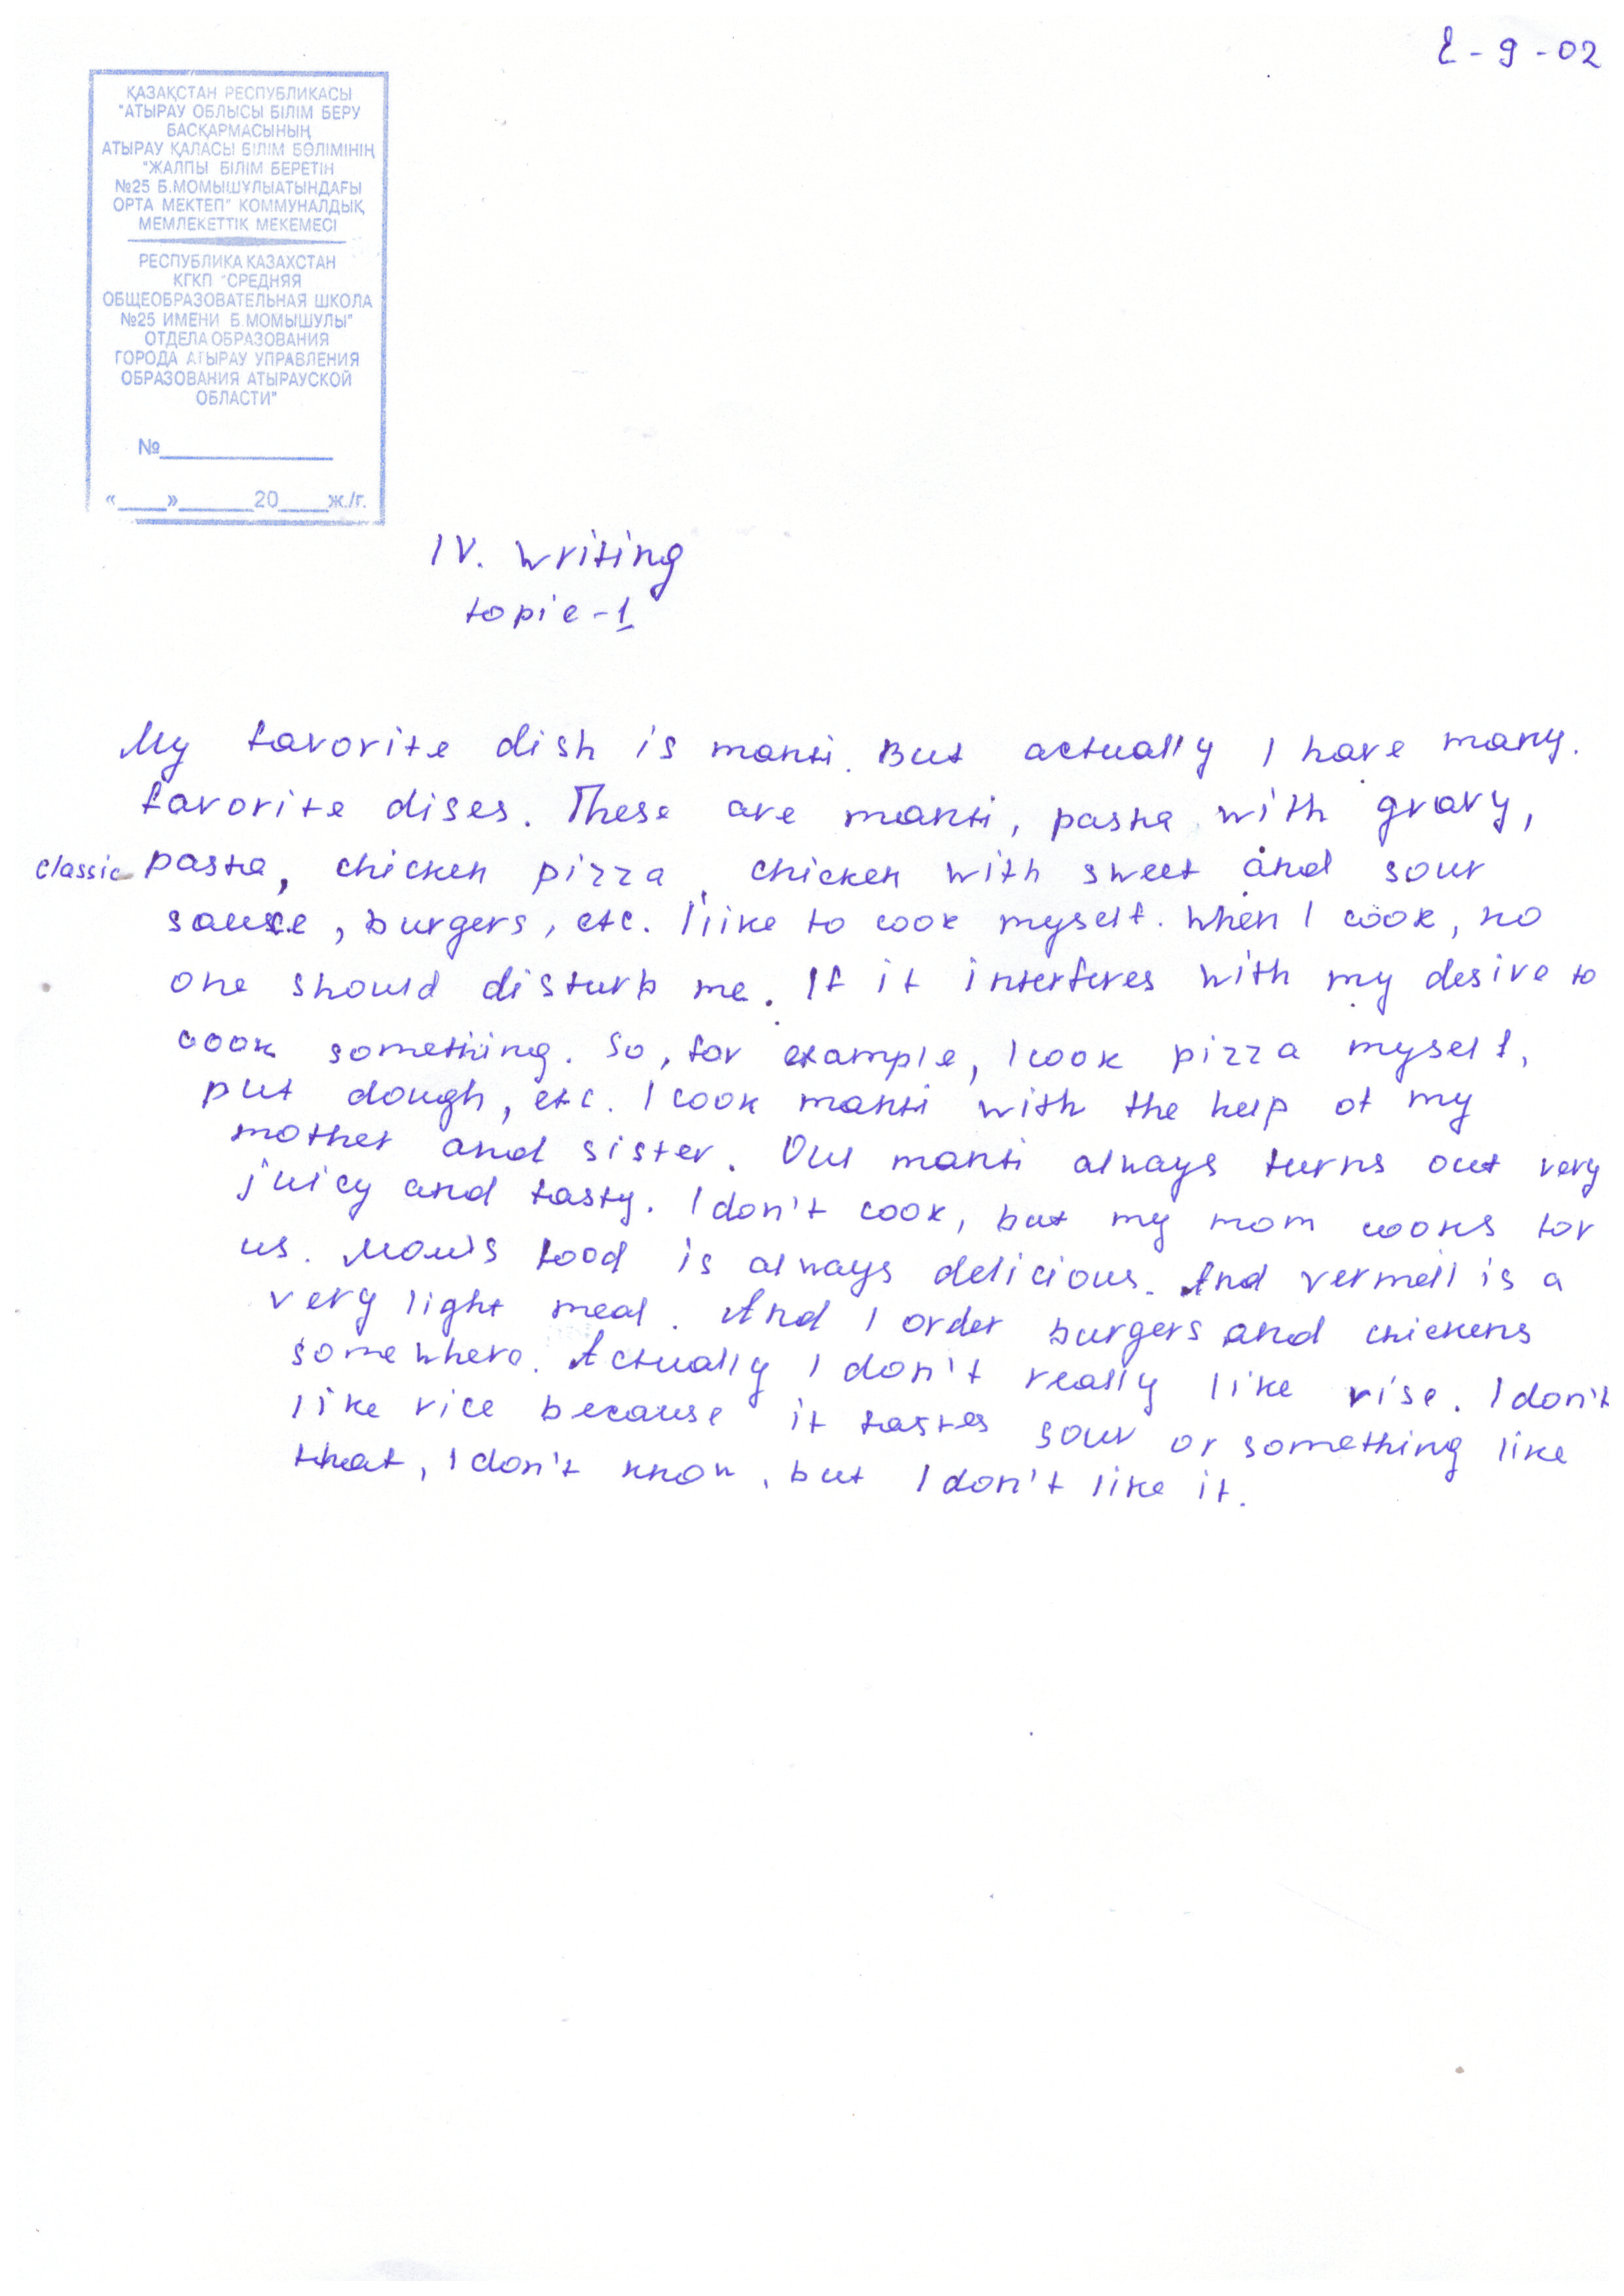 E-9-02
ҚАЗАҚСТАН РЕСПУБЛИКАСЫ
"АТЫРАУ ОБЛЫСЫ БІЛІМ БЕРУ
БАСҚАРМАСЫНЫҢ
АТЫРАУ ҚАЛАСЫ БІЛІМ БӨЛІМІНІҢ
"ЖАЛПЫ БІЛІМ БЕРЕТІН
№25 Б.МОМЫШҰЛЫАТЫНДАҒЫ
ОРТА МЕКТЕП" КОММУНАЛДЫҚ
МЕМЛЕКЕТТІК МЕКЕМЕСІ
РЕСПУБЛИКА КАЗАХСТАН
КГКП "СРЕДНЯЯ
ОБЩЕОБРАЗОВАТЕЛЬНАЯ ШКОЛА
№25 ИМЕНИ Б.МОМЫШУЛЫ"
ОТДЕЛА ОБРАЗОВАНИЯ
ГОРОДА АТЫРАУ УПРАВЛЕНИЯ
ОБРАЗОВАНИЯ АТЫРАУСКОЙ
ОБЛАСТИ"
№____________
«____»______20____ж./г.
IV. Writing
topic-1
My favorite dish is manti. But actually I have many.
favorite dises. These are manti, pasta with gravy,
classic pasta, chicken pizza, chicken with sweet and sour
sauce, burgers, etc. I like to cook myself. When I cook, no
one should disturb me. If it interferes with my desire to
cook something. So, for example, I cook pizza myself,
put dough, etc. I cook manti with the help of my
mother and sister. Our manti always turns out very
juicy and tasty. I don't cook, but my mom cooks for
us. Mom's food is always delicious. And vermell is a
very light meal. And I order burgers and chickens
somewhere. Actually I don't really like rise. I don't
like rice because it tastes sour or something like
that, I don't know, but I don't like it.